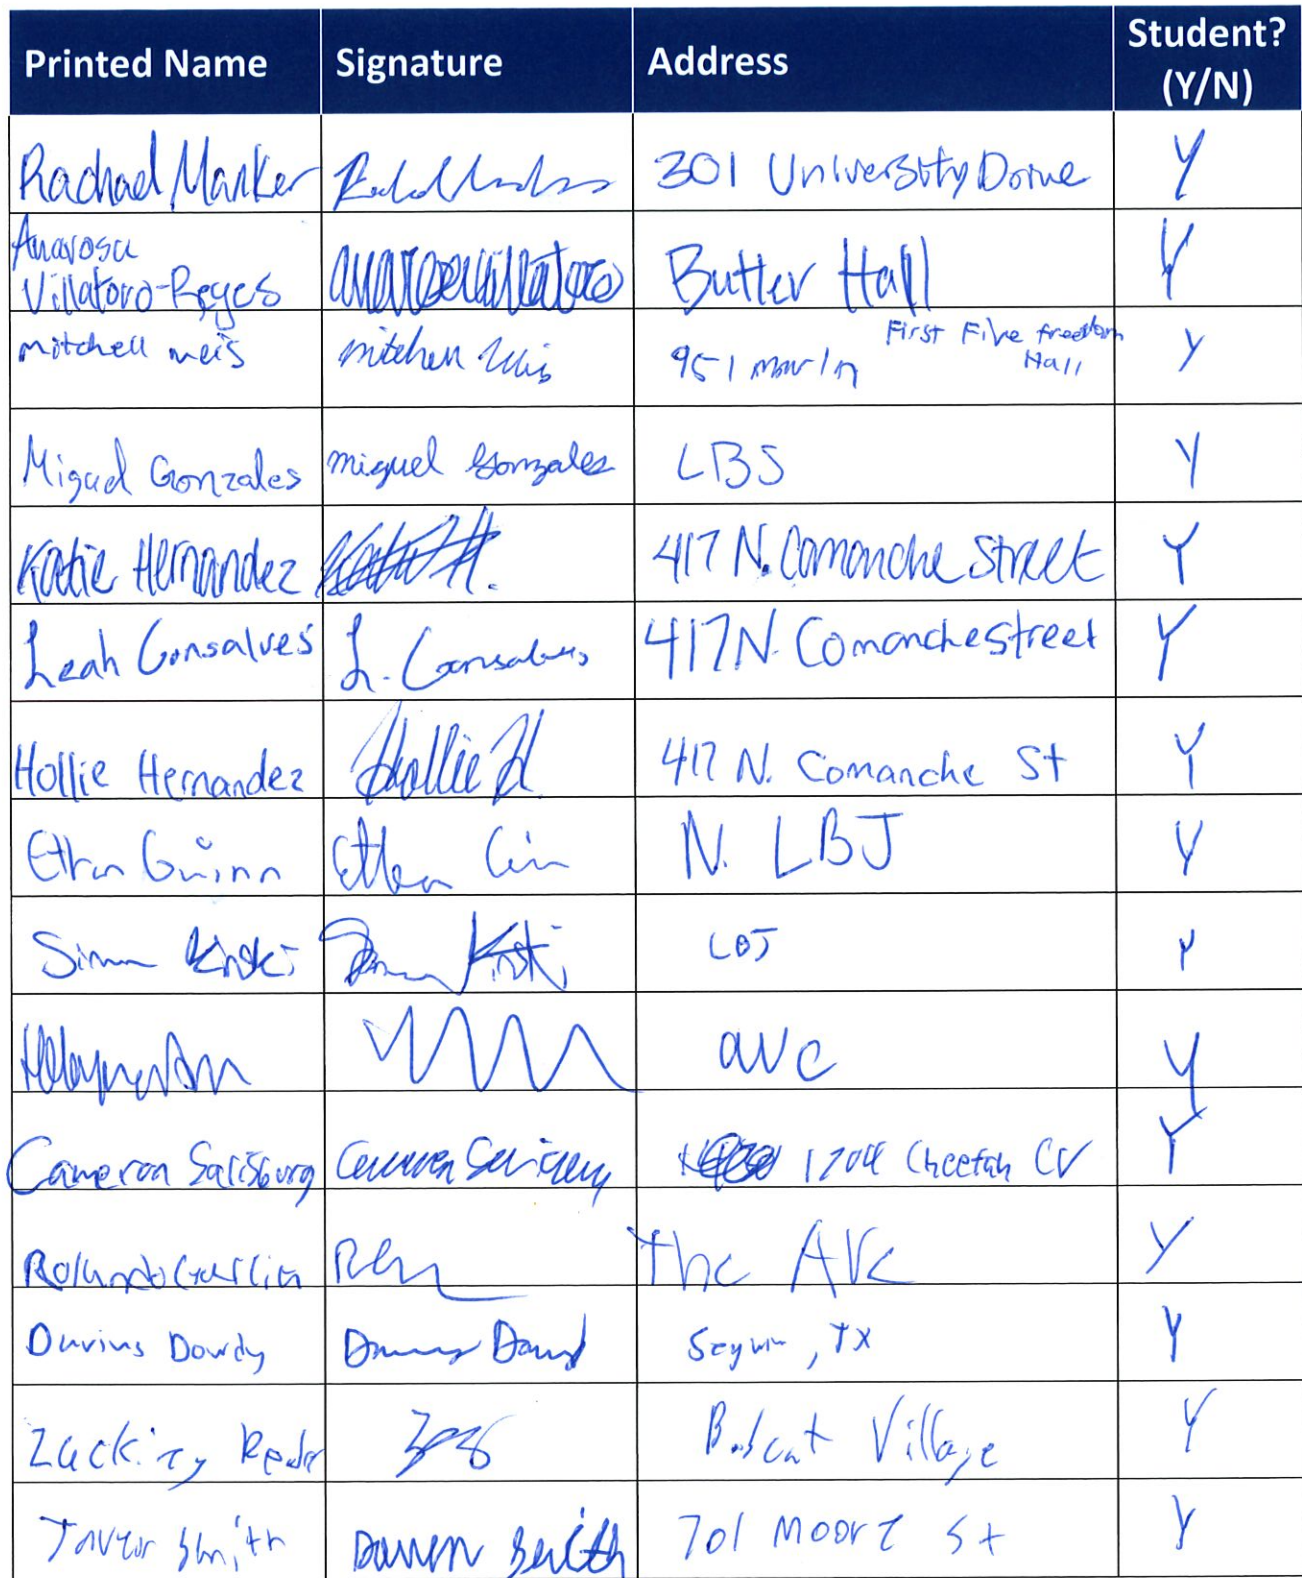 Printed Name Signature Address Student? (Y/N)
Rachael Manker 301 University Drive Y
Anarosa
Villatoro-Reyes anarosavillatoro Butler Hall Y
mitchell meis mitchell meis 951 First Five freedom Hall Y
Miguel Gonzales miguel Gonzales LBJ Y
Katie Hernandez Katie H. 417 N. Comanche Street Y
Leah Gonsalves L. Gonsalves 417 N. Comanche Street Y
Hollie Hernandez Hollie H 417 N. Comanche St Y
Ethan Guinn Ethan N. LBJ Y
LBJ Y
ave Y
Cameron Salisburg 1704 Cheetah CV Y
Rolando The AVE Y
Darius Dowdy Seguin, TX Y
Bobcat Village Y
Smith Smith 701 Moore St Y